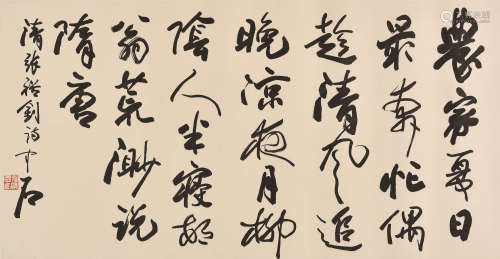 農家夏日
最奔忙偶
趁清風追
晚涼夜月柳
陰人半寢邨
翁荒渺說
隋唐
清張裕釗詩中石